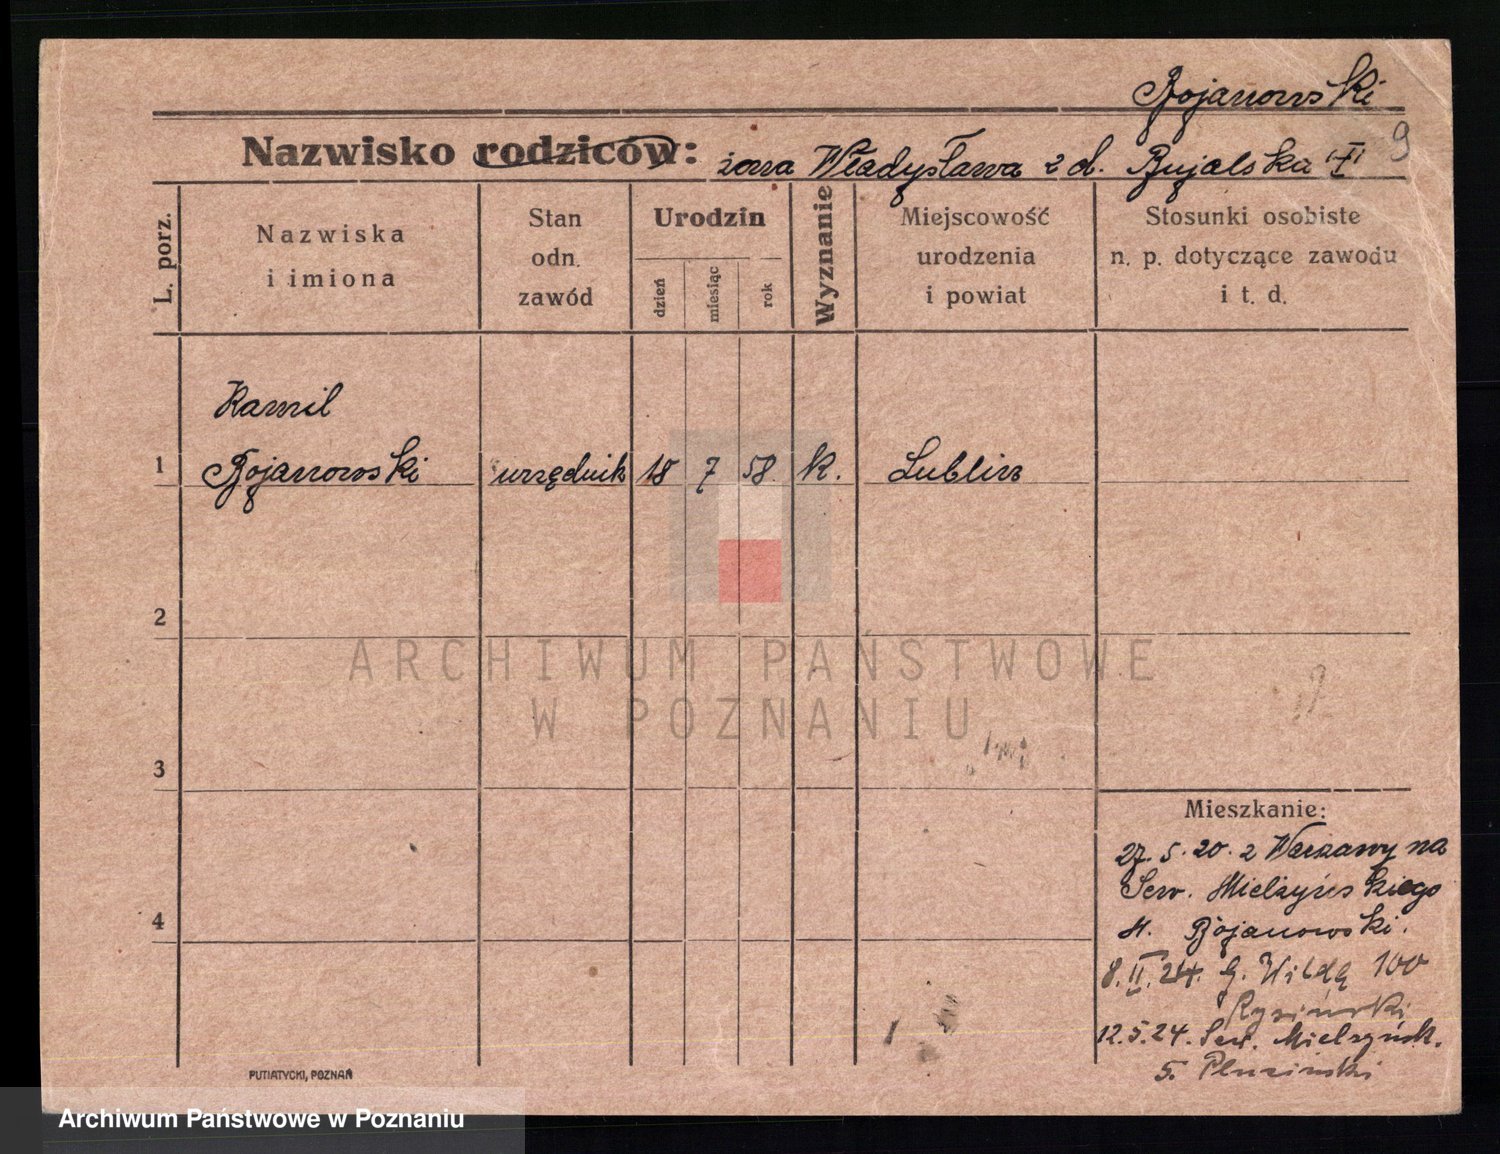 Bojanowski
9
Nazwisko rodziców: żona Władysława z d. Bujalska
L. porz.
Nazwiska
i imiona
Stan
odn.
zawód
Urodzin
dzień
miesiąc
rok
Wyznanie
Miejscowość
urodzenia
i powiat
Stosunki osobiste
n. p. dotyczące zawodu
i t. d.
Kamil
1 Bojanowski urzędnik 18 7 58 k. Lublin
2
3
4
Mieszkanie:
27. 5. 20. z Warszawy na
Sew. Mielżyńskiego
4. Bojanowski.
8. II. 24. G. Wildę 100
Rysiński
12. 5. 24. Sew. Mielżyńsk.
5. Pluciński
PUTIATYCKI, POZNAŃ
ARCHIWUM PAŃSTWOWE
W POZNANIU
Archiwum Państwowe w Poznaniu